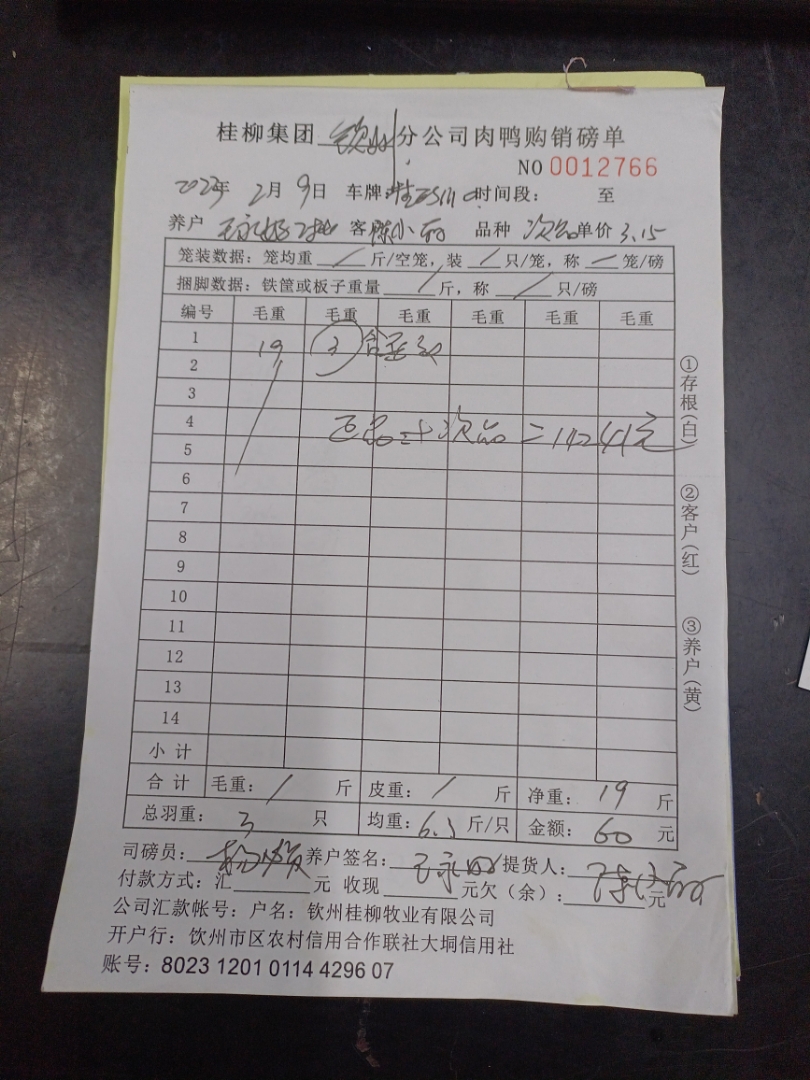 桂柳集团 钦州 分公司肉鸭购销磅单
NO 0012766
2023年 2月 9日 车牌: 时间段: 至
养户 客 陈小 品种 次品 单价 3.15
笼装数据: 笼均重 / 斤/空笼, 装 / 只/笼, 称 / 笼/磅
捆脚数据: 铁筐或板子重量 / 斤, 称 / 只/磅
编号 毛重 毛重 毛重 毛重 毛重 毛重
1
19 3
2
3
4
正品+次品=14241元
5
6
7
8
9
10
11
12
13
14
小计
合计 毛重: / 斤 皮重: / 斤 净重: 19 斤
总羽重: 3 只 均重: 6.3 斤/只 金额: 60 元
司磅员: 养户签名: 提货人:
付款方式: 汇 元 收现 元欠(余): 元
公司汇款帐号: 户名: 钦州桂柳牧业有限公司
开户行: 钦州市区农村信用合作联社大垌信用社
账号: 8023 1201 0114 4296 07
①存根(白)
②客户(红)
③养户(黄)